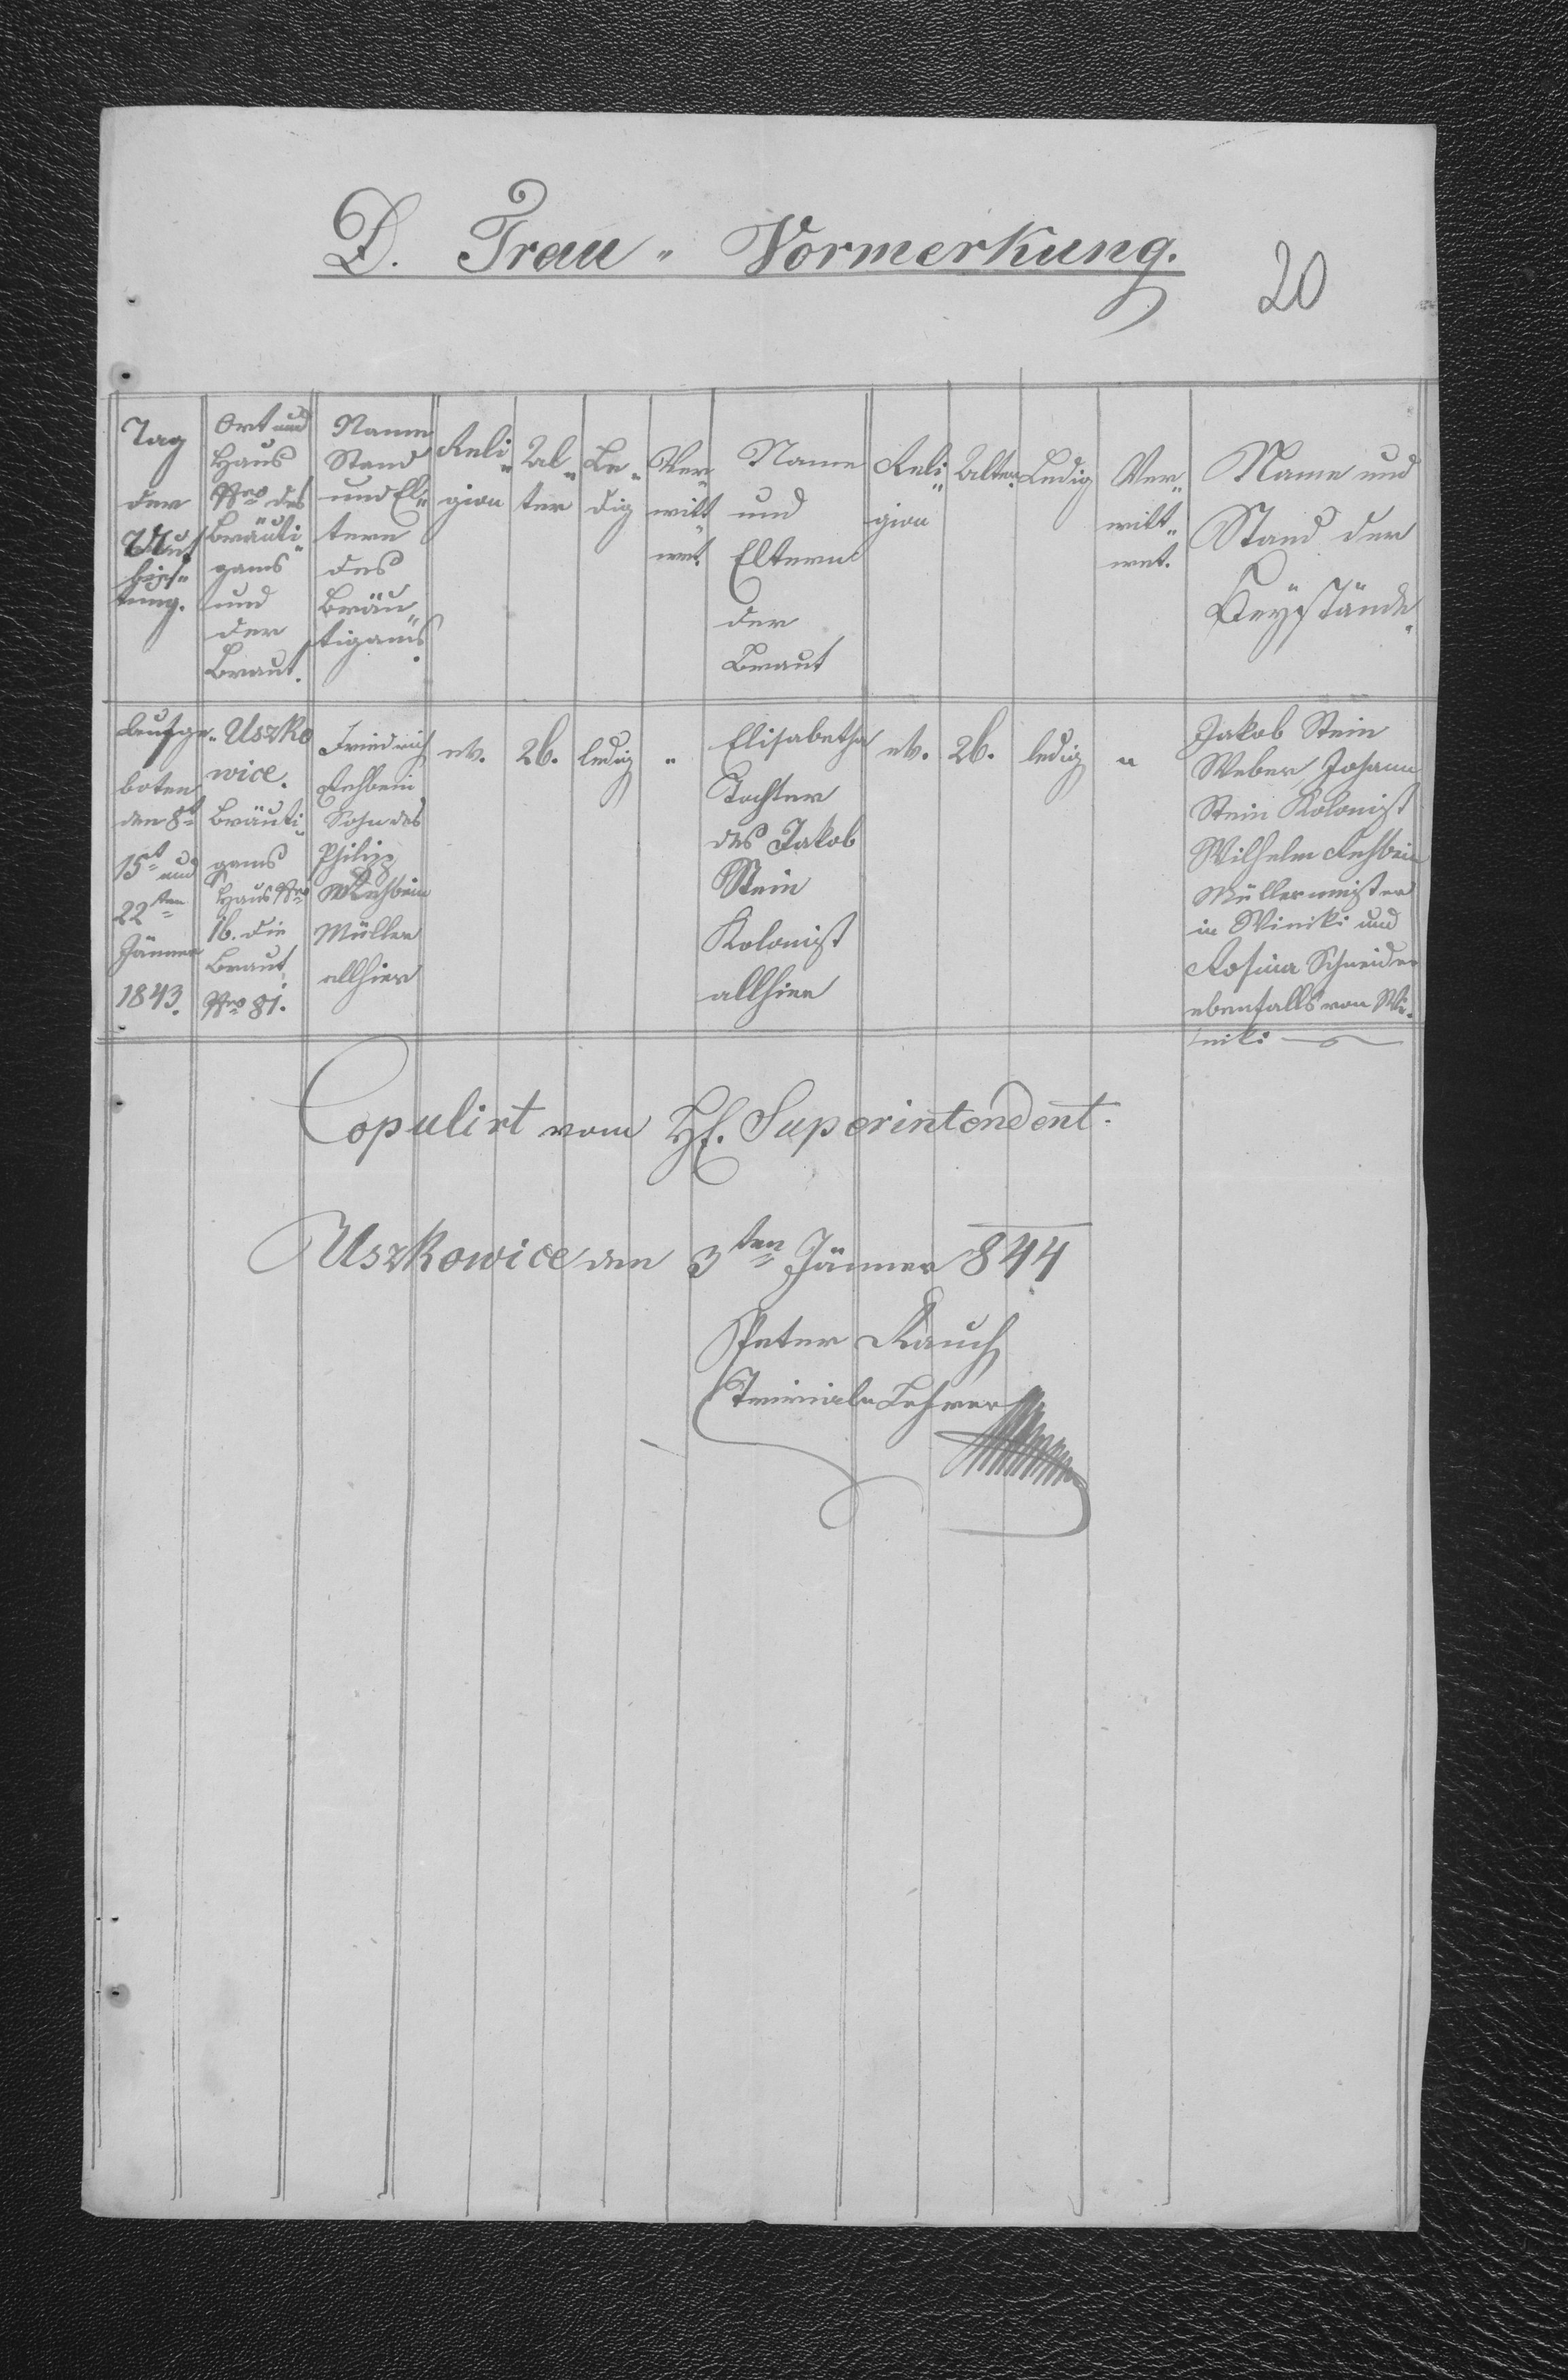 D. Trau- Vormerkung.
20
Tag
der
bie-
tung.
Ort und
Haus
Nro des
Bräuti-
gams
und
der
Braut.
Name
Stand
und El-
tern
des
Bräu-
tigams.
Reli-
gion
Al-
ter
Le-
dig
Ver-
witt-
wet.
Name
und
Eltern
der
Braut
Reli-
gion
Alter
Ledig
Ver-
witt-
wet.
Name und
Stand der
Beystände.
Aufge-
boten
den 8t
15t und
22ten
Jänner
1843.
Uszko
wice.
Bräuti-
gams
Haus Nro
16. die
Braut
Nro 81.
Friedrich
Rehbein
Sohn des
Philipp
Rehbein
Müller
allhier
ev.
26.
ledig
"
Elisabetha
Tochter
des Jakob
Stein
Kolonist
allhier
ev.
26.
ledig
"
Jakob Stein
Weber Johann
Stein Kolonist
Wilhelm Rehbein
Müllermeister
in Winiki und
Rosina Schneider
ebenfalls von Wi-
niki
Copulirt vom H. Superintendent.
Uszkowice den 3ten Jänner 844
Peter Rauch
Trivial-Lehrer